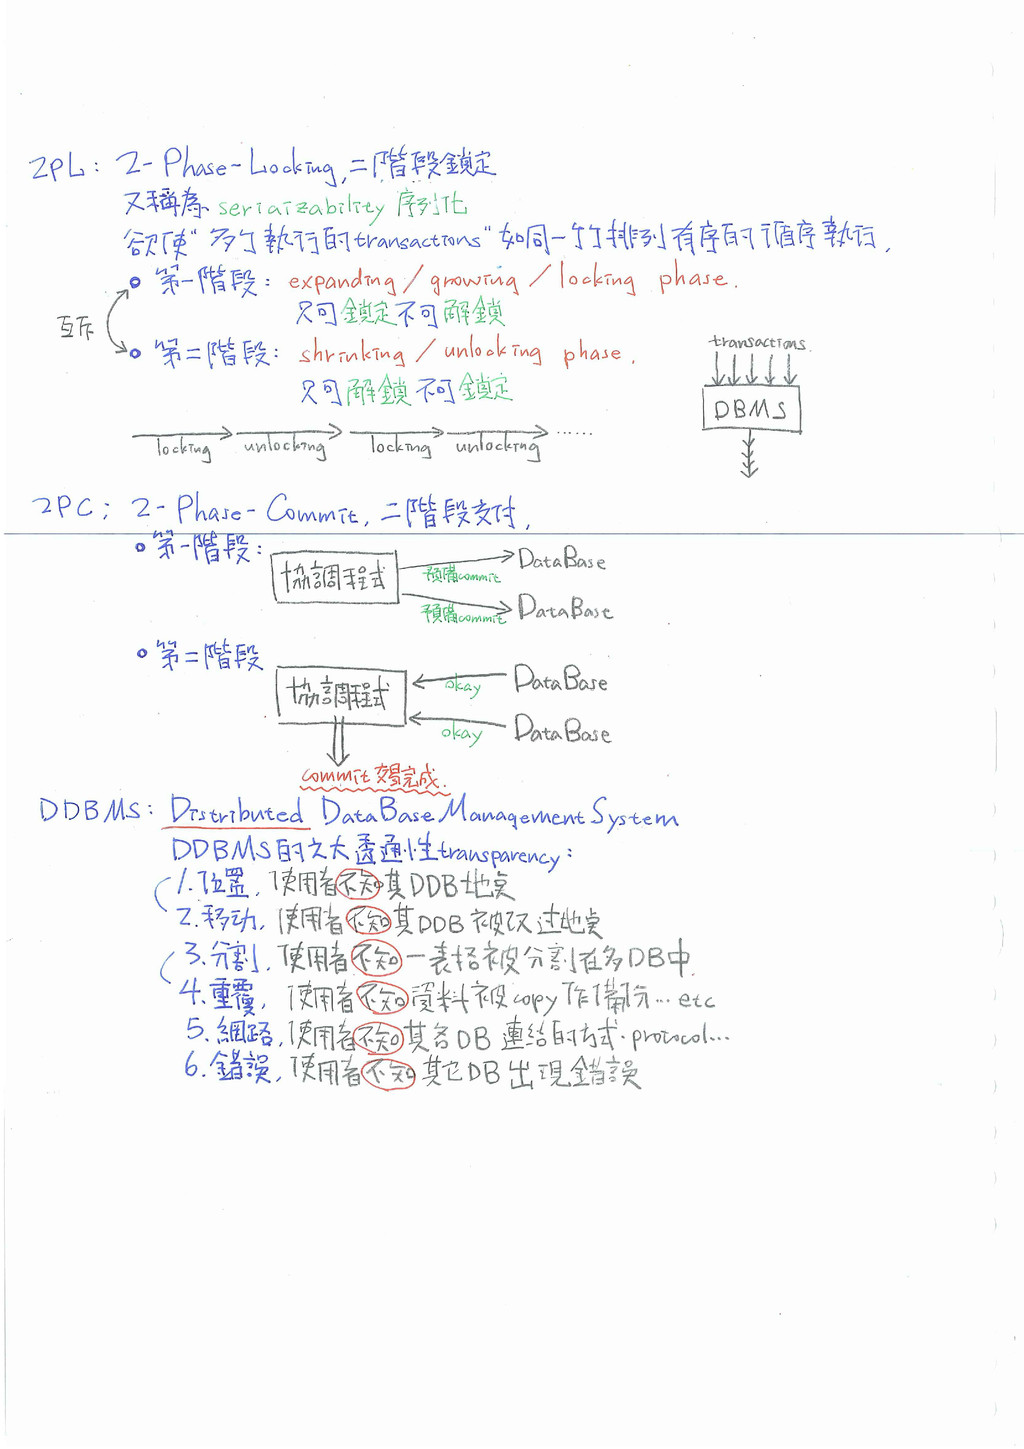 2PL: 2-Phase-Locking, 二階段鎖定
又稱為 seriaizability 序列化
欲使"多个執行的transactions"如同一个个排列有序的循序執行,
第一階段: expanding / growing / locking phase.
只可鎖定不可解鎖
互斥
第二階段: shrinking / unlocking phase.
只可解鎖不可鎖定
transactions
DBMS
locking unlocking locking unlocking ......
2PC: 2-Phase-Commit, 二階段交付,
第一階段:
協調程式
預備commit DataBase
預備commit DataBase
第二階段
協調程式
okay DataBase
okay DataBase
commit 交易完成.
DDBMS: Distributed DataBase Management System
DDBMS的六大透通性transparency:
1. 位置, 使用者不知其DDB地點
2. 移動, 使用者不知其DDB被改过地點
3. 分割, 使用者不知一表格被分割在多DB中
4. 重覆, 使用者不知資料被copy作備份...etc
5. 網路, 使用者不知其各DB連結的方式.protocol...
6. 錯誤, 使用者不知其它DB出現錯誤